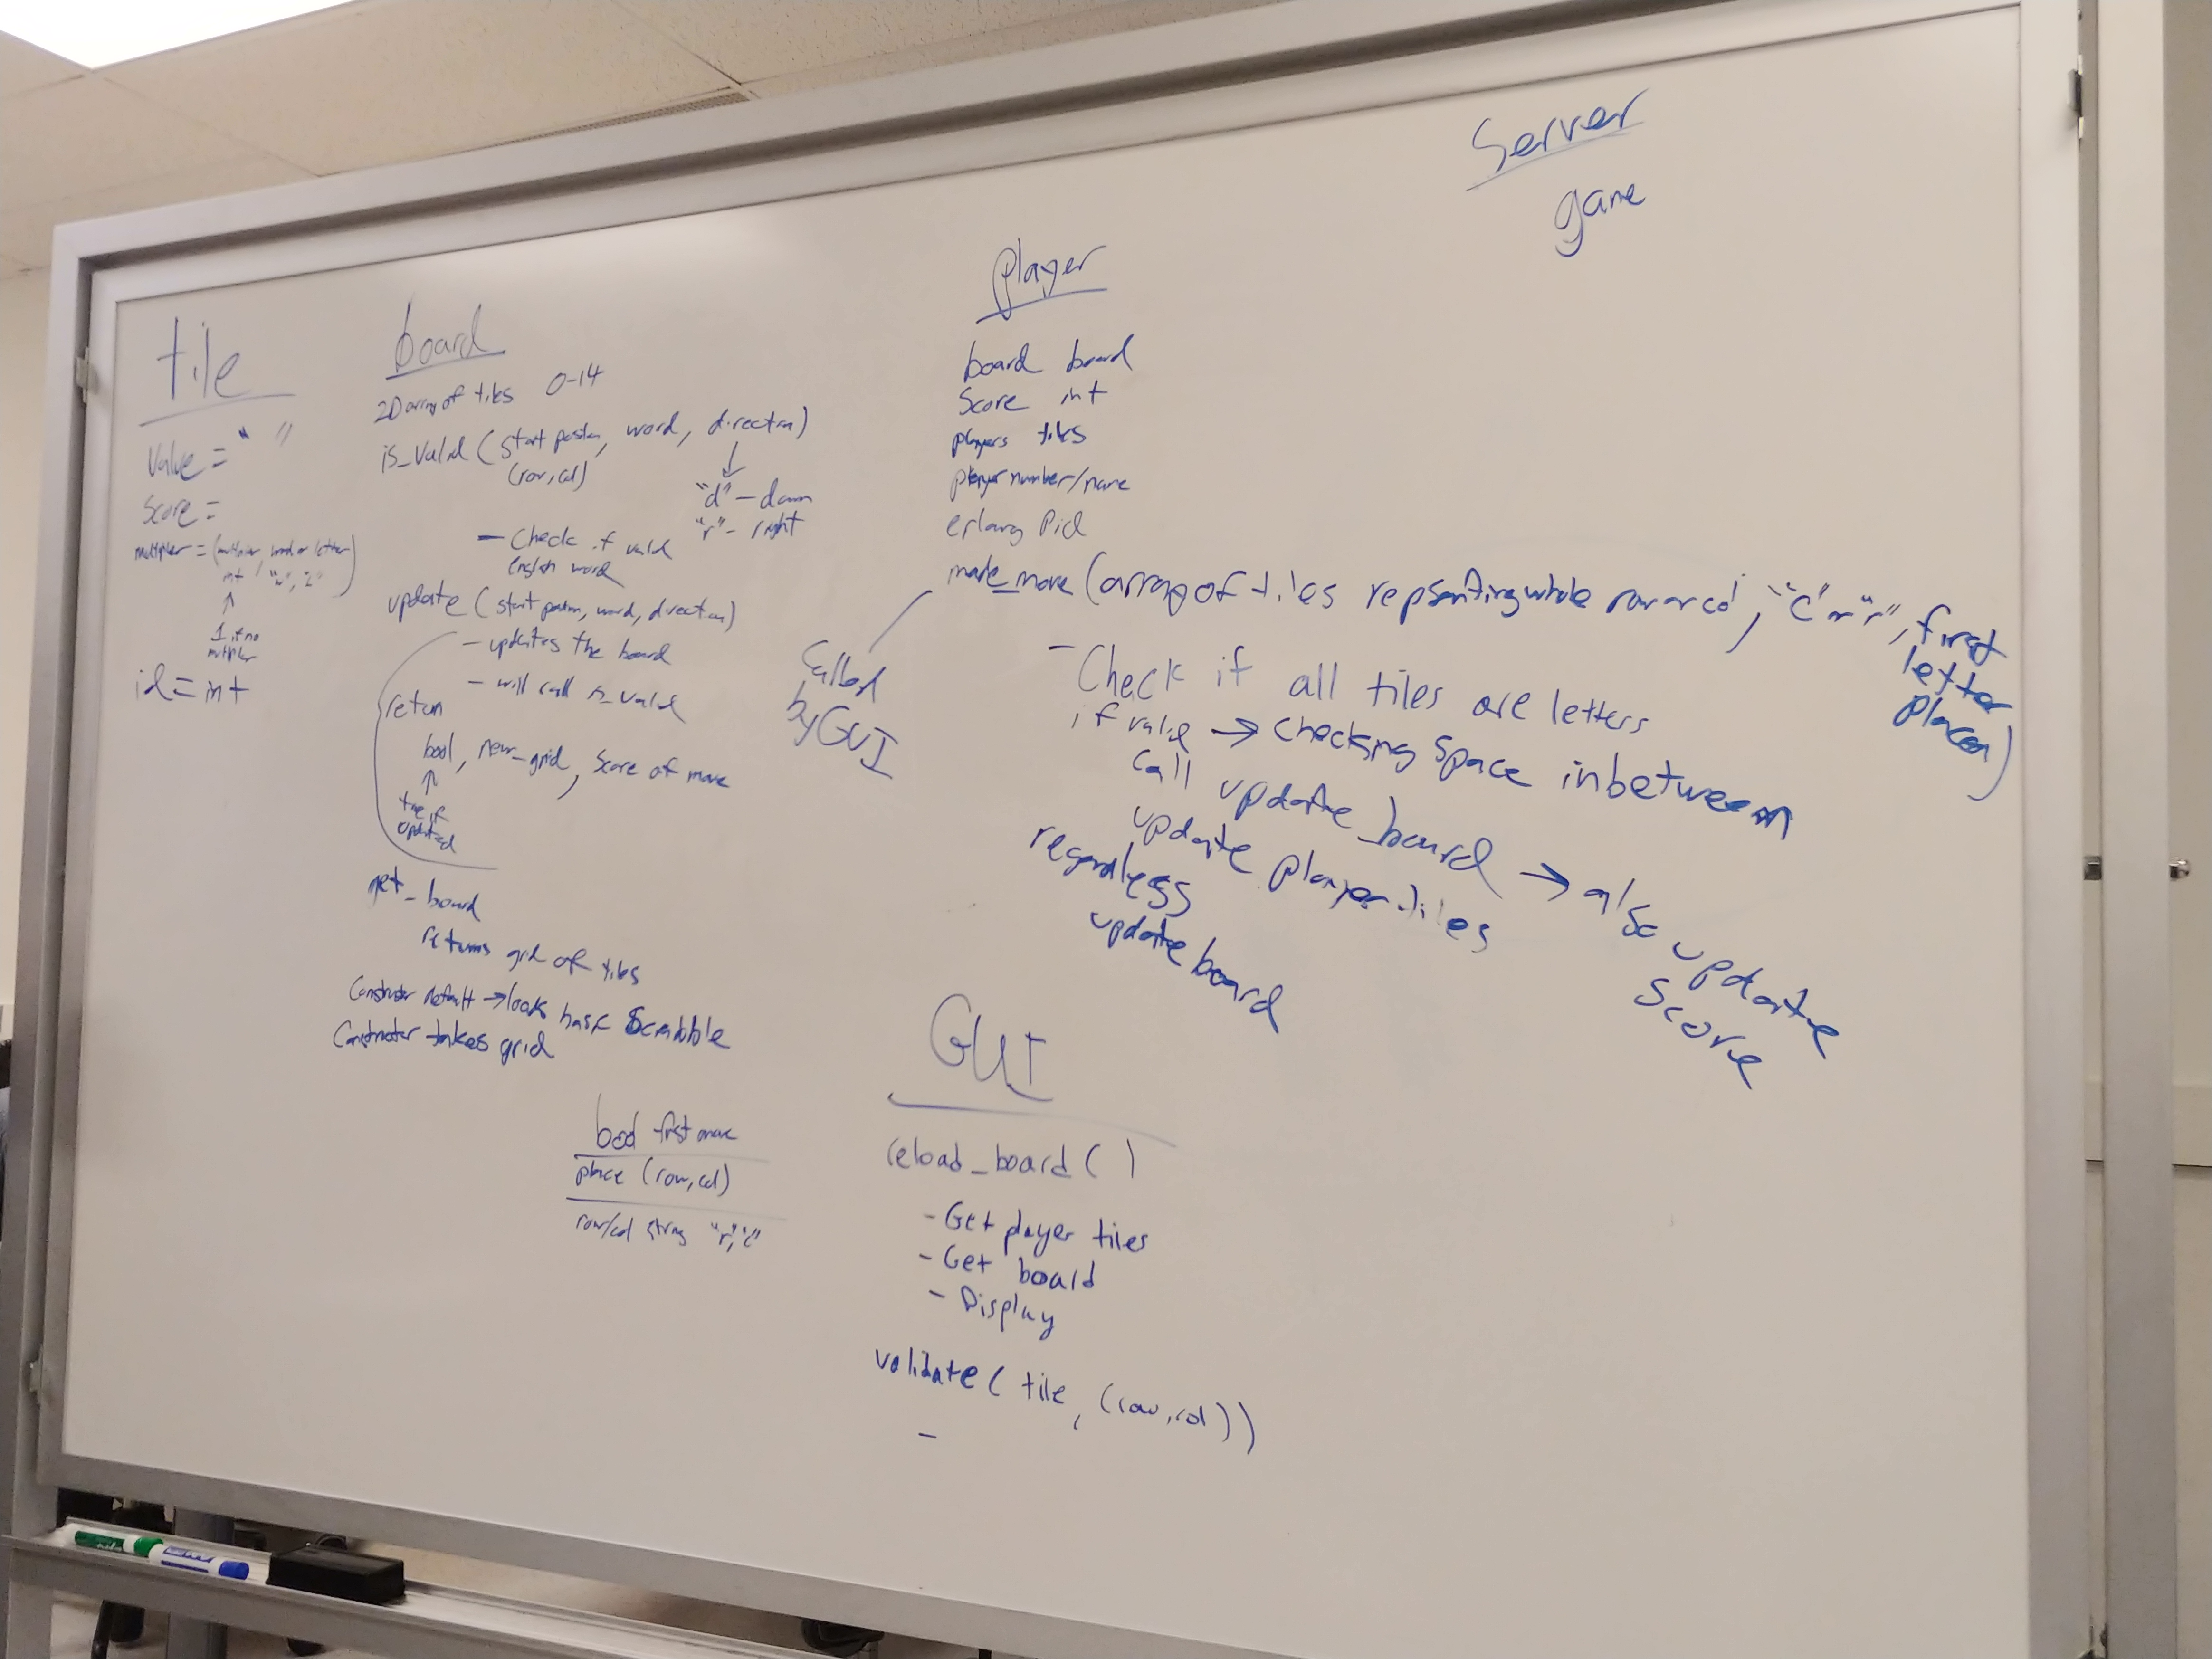 tile
value = " "
score =
multiplier = (multiplier, word or letter)
int / "w", "L"
1 if no
multiplier
id = int
board
2D array of tiles 0-14
is_valid (start position, word, direction)
(row, col)
"d" - down
"r" - right
- Check if valid
English word
update (start position, word, direction)
- updates the board
- will call is_valid
return
bool, new_grid, score of move
true if
updated
get_board
returns grid of tiles
Constructor default → looks basic Scrabble
Constructor takes grid
bool first move
place (row, col)
row/col string "r", "c"
player
board board
Score int
players tiles
player number/name
erlang Pid
make_move (array of tiles repsenting whole row or col, "c" or "r", first
letter
placed)
Called
by GUI
- Check if all tiles are letters
if valid → checking space inbetween
call update_board → also update
score
update player tiles
regardless
update board
GUI
reload_board ( )
- Get player tiles
- Get board
- Display
validate ( tile, (row, col))
-
Server
game